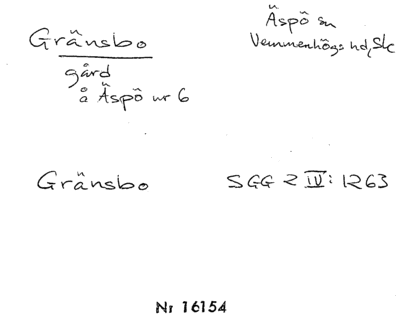 Gränsbo
Äspö sn
Vemmenhögs hd, Sk
gård
å Äspö nr 6
Gränsbo
SGG 2 IV: 1263
Nr 16154